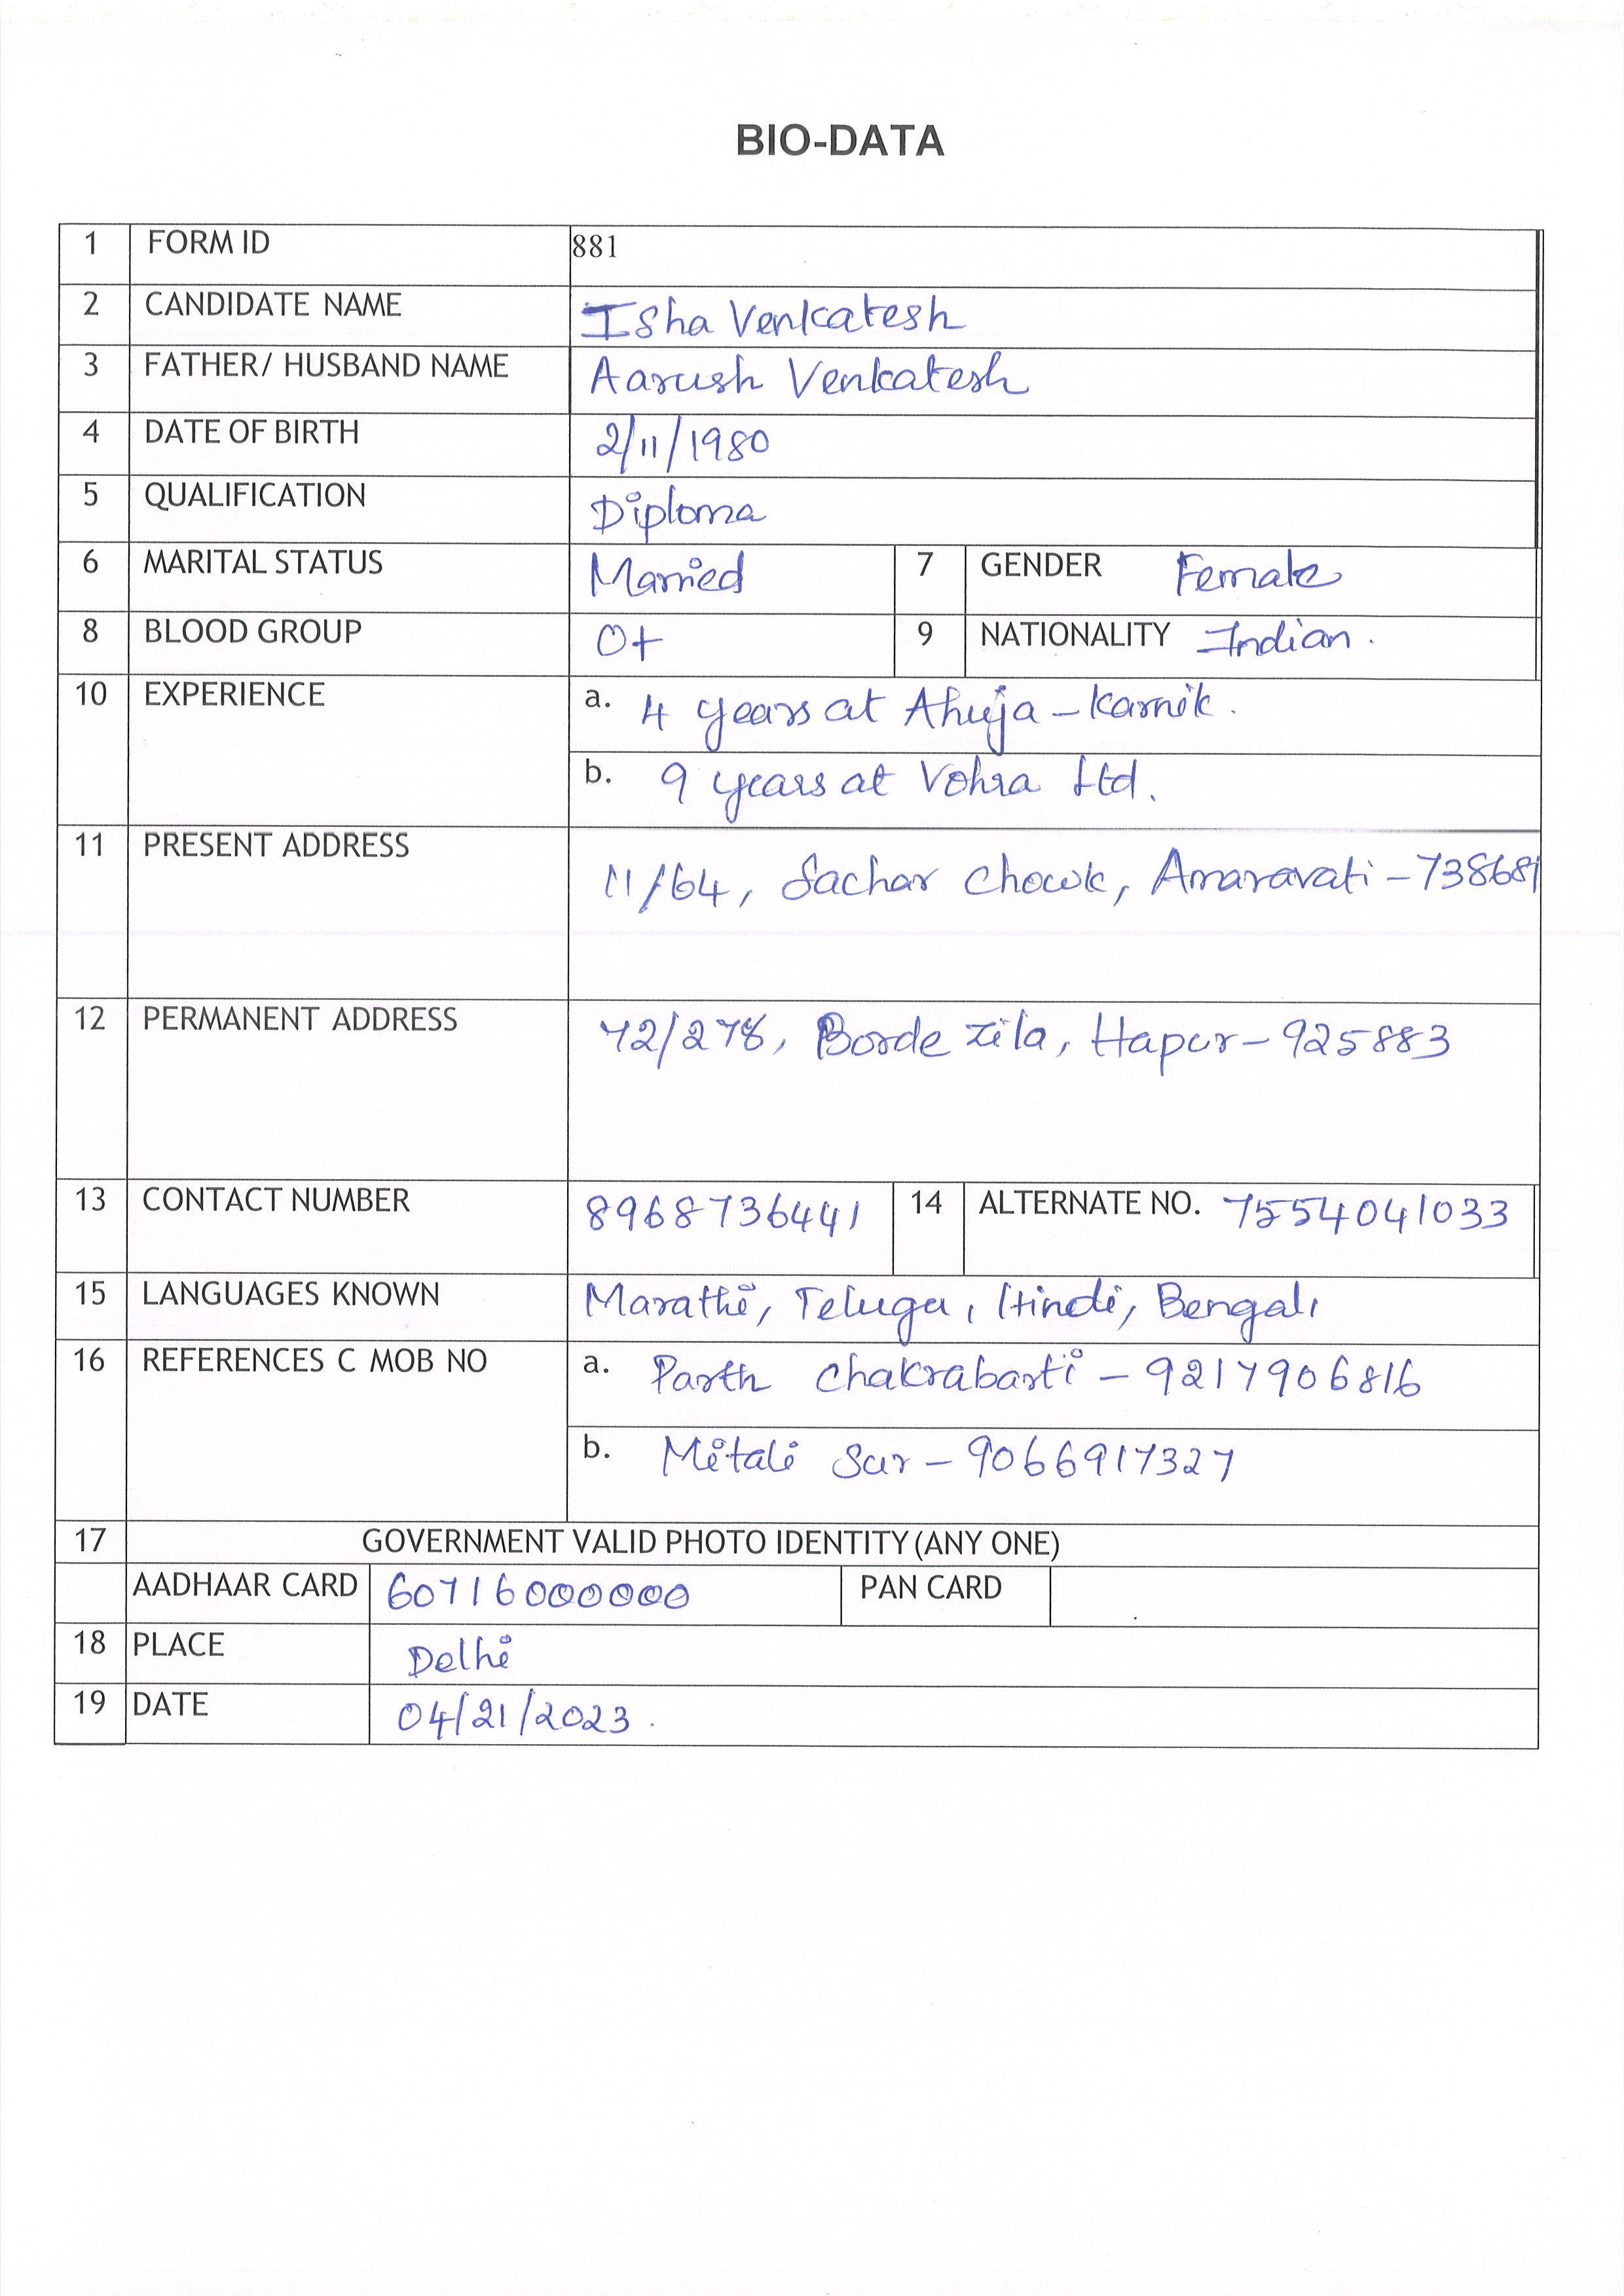 BIO-DATA
1 FORM ID 881
2 CANDIDATE NAME Isha Venkatesh
3 FATHER/ HUSBAND NAME Aarush Venkatesh
4 DATE OF BIRTH 2/11/1980
5 QUALIFICATION Diploma
6 MARITAL STATUS Married 7 GENDER Female
8 BLOOD GROUP O+ 9 NATIONALITY Indian.
10 EXPERIENCE a. 4 years at Ahuja-Karnik.
b. 9 years at Vohra Ltd.
11 PRESENT ADDRESS 11/64, Sachar Chowk, Amaravati-738681
12 PERMANENT ADDRESS 72/278, Borde Zila, Hapur-925883
13 CONTACT NUMBER 8968736441 14 ALTERNATE NO. 7554041033
15 LANGUAGES KNOWN Marathi, Telugu, Hindi, Bengali
16 REFERENCES C MOB NO a. Parth Chakrabarti - 9217906816
b. Mitali Sur - 9066917327
17 GOVERNMENT VALID PHOTO IDENTITY (ANY ONE)
AADHAAR CARD 60716000000 PAN CARD
18 PLACE Delhi
19 DATE 04/21/2023.